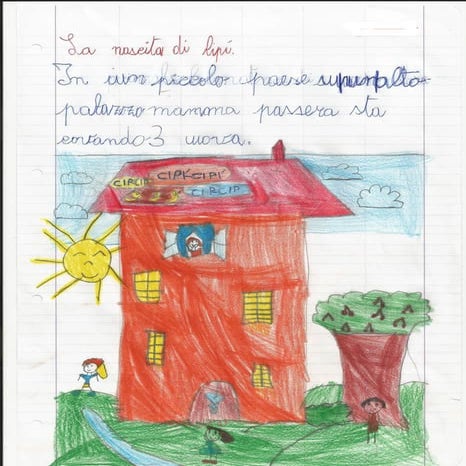 La nascita di Cipí.
In un piccolo paese su un alto
palazzo mamma passera sta
covando 3 uova.
CIPÍCIPÍ
CIPCIP
CIPCIP